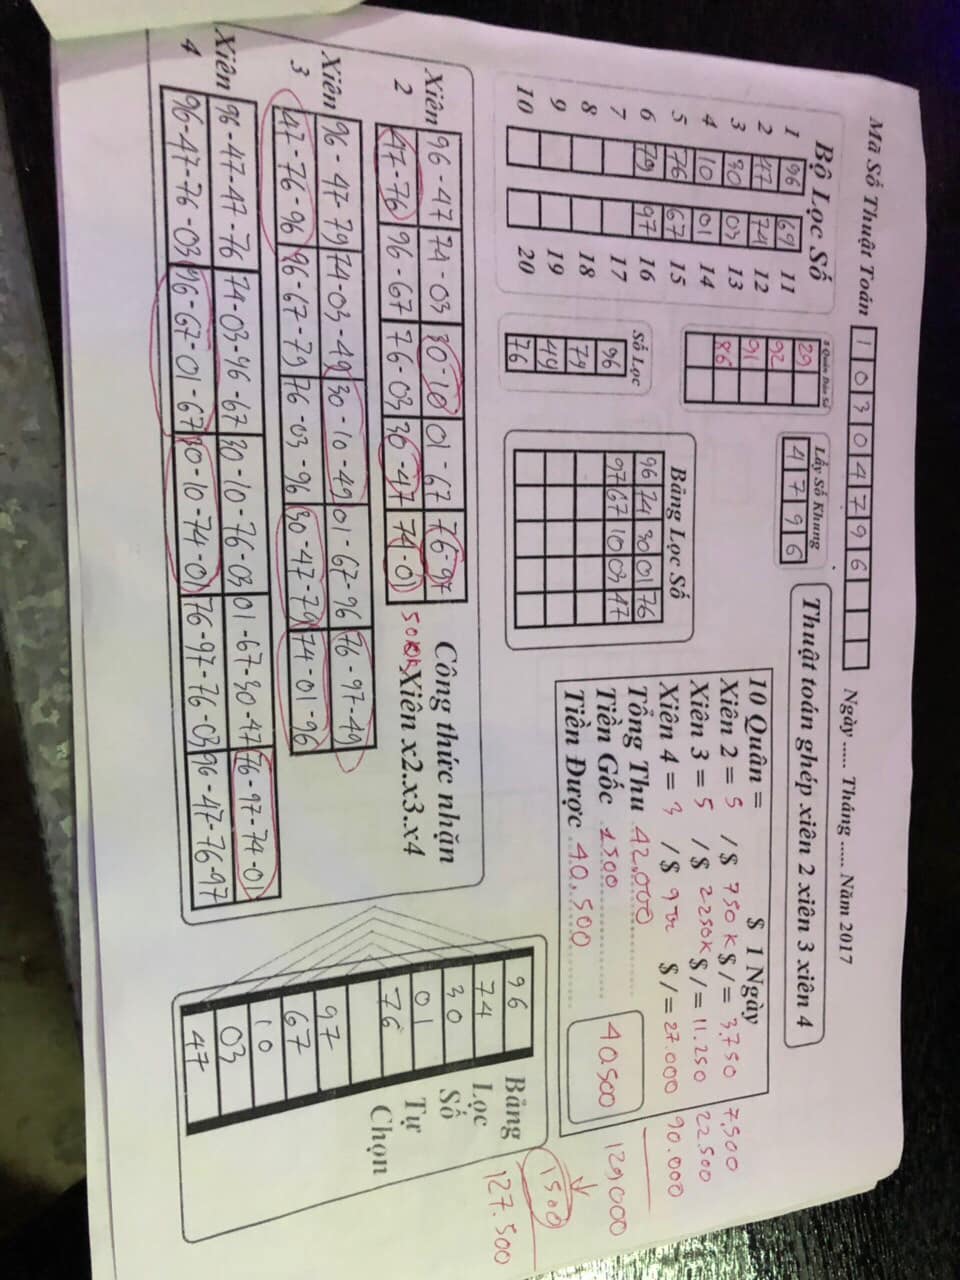 Mã Số Thuật Toán 1 0 3 0 4 7 9 6
Ngày ..... Tháng ..... Năm 2017
Bộ Lọc Số
1 96 69 11
2 47 74 12
3 30 03 13
4 10 01 14
5 76 67 15
6 79 97 16
7 17
8 18
9 19
10 20
8 Quân Dàn Số
29
92
91
86
Lấy Số Khung
4 7 9 6
Số Lọc
96
79
49
76
Bảng Lọc Số
96 74 30 01 76
97 67 10 03 47
Thuật toán ghép xiên 2 xiên 3 xiên 4
10 Quân = $ 1 Ngày
Xiên 2 = 5 /$ 750 K $/= 3.750 7.500
Xiên 3 = 5 /$ 2250K $/= 11.250 22.500
Xiên 4 = 3 /$ 9Tr $/= 27.000 90.000
Tổng Thu 42.000
Tiền Gốc 1500
Tiền Được 40.500
40.500
129000
1500
127.500
Xiên 2
96-47 74-03 30-10 01-67 76-97
47-76 96-67 76-03 30-47 74-01
Công thức nhận
Xiên x2.x3.x4
Xiên 3
96-47-79 74-03-49 30-10-49 01-67-96 76-97-49
47-76-96 96-67-79 76-03-96 30-47-79 74-01-96
Xiên 4
96-47-47-76 74-03-96-67 30-10-76-03 01-67-30-47 76-97-74-01
96-47-76-03 96-67-01-67 30-10-74-01 76-97-76-03 96-47-76-97
96
74
30
01
76
97
67
10
03
47
Bảng
Lọc
Số
Tự
Chọn